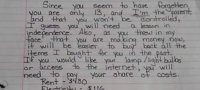 Since you seem to have forgotten
you are only 13, and I'm the parent
and that you won't be controlled,
I guess you need a lesson in
independence. Also, as you threw in my
face that you are making money now,
it will be easier to buy back all the
items I bought for you in the past.
If you would like your lamp/lightbulbs
or access to the internet, you will
need to pay your share of costs.
Rent - $430
Electricity - $116